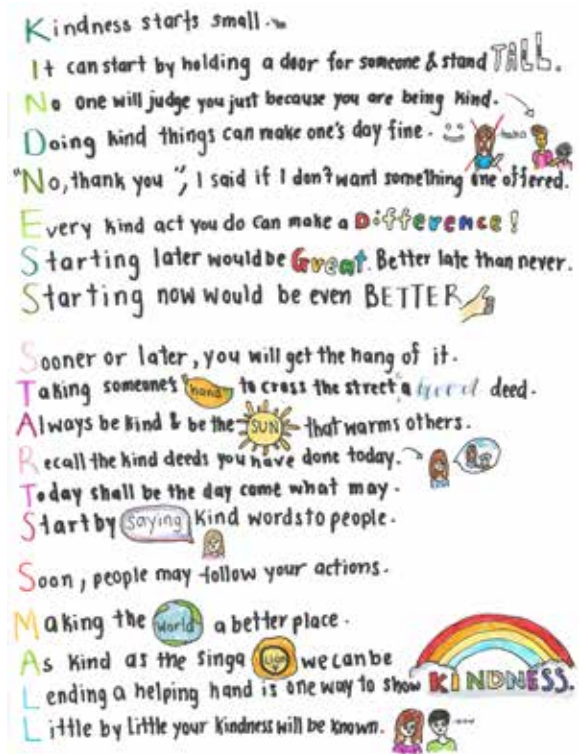 Kindness starts small.
It can start by holding a door for someone & stand TALL.
No one will judge you just because you are being kind.
Doing kind things can make one's day fine. haha
"No, thank you", I said if I don't want something one offered.
Every kind act you do can make a Difference!
Starting later would be Great. Better late than never.
Starting now would be even BETTER
Sooner or later, you will get the hang of it.
Taking someone's hand to cross the street, a good deed.
Always be kind & be the SUN that warms others.
Recall the kind deeds you have done today.
Today shall be the day come what may.
Start by saying kind words to people.
Soon, people may follow your actions.
Making the world a better place.
As kind as the Singa Lion we can be
Lending a helping hand is one way to show KINDNESS.
Little by little your kindness will be known.